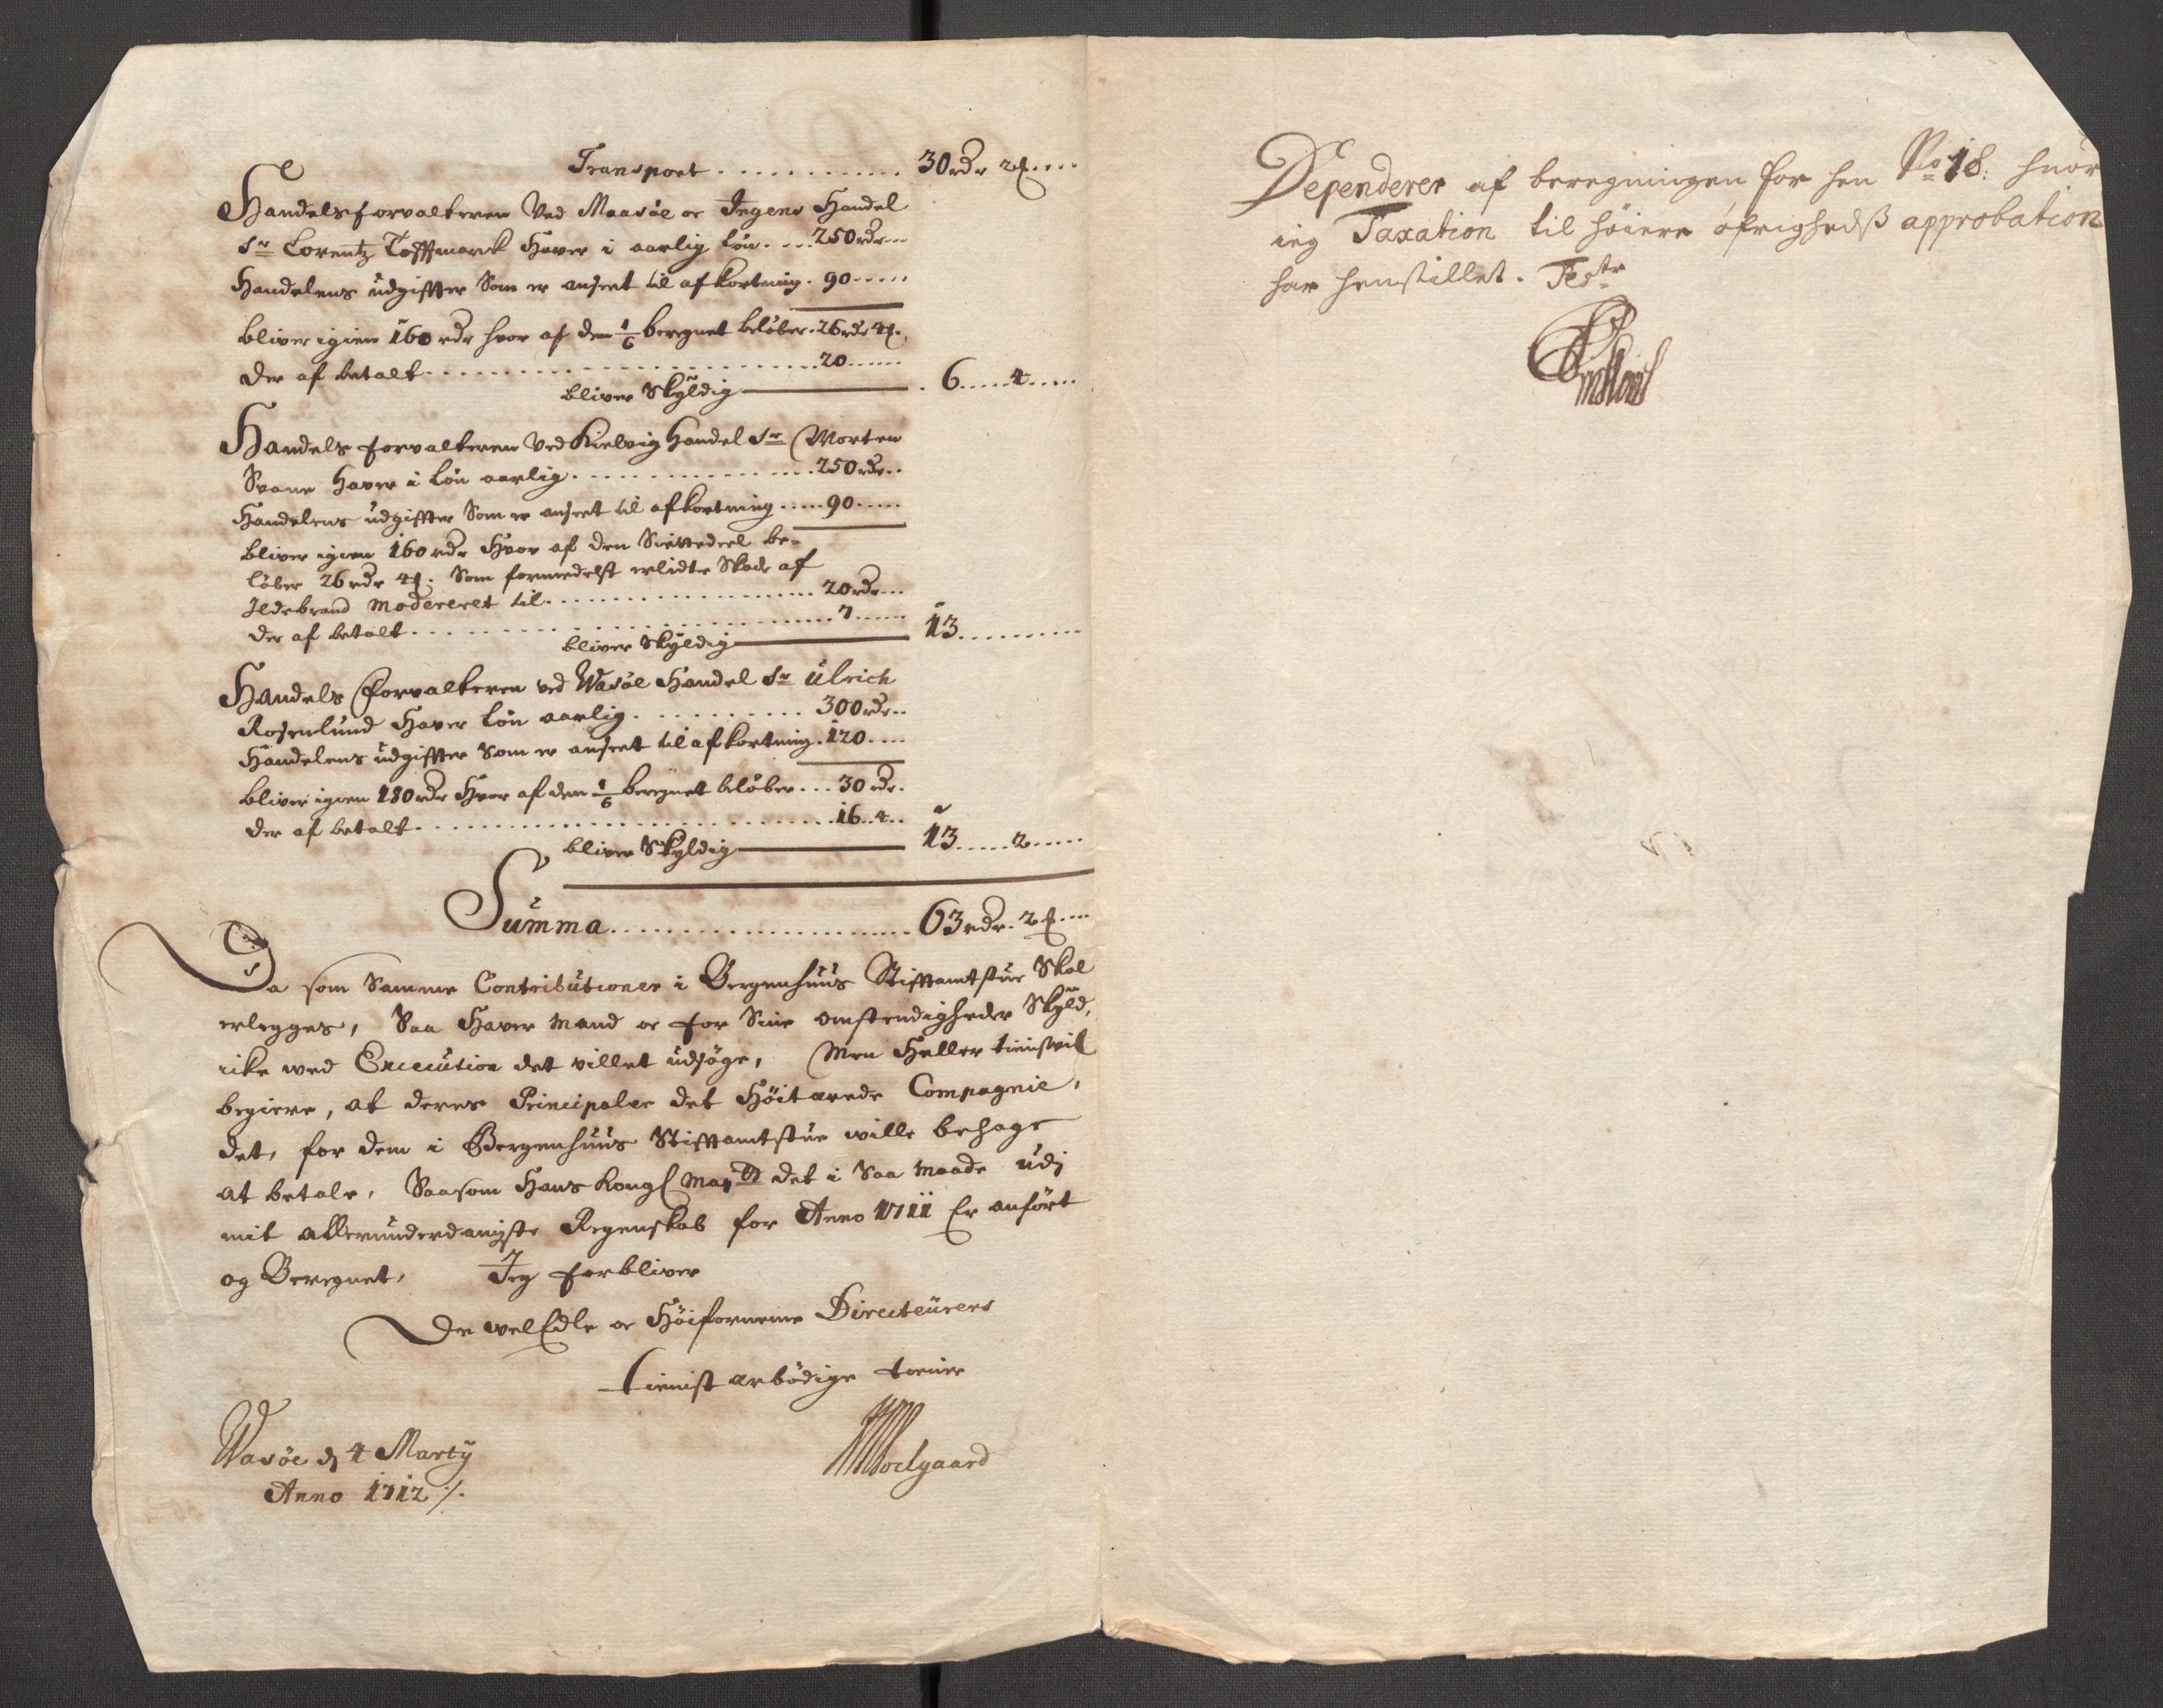 Transport ............ 30 rdr 2 ß ....
Handelsforvalteren Ved Maasöe oc Ingens Handel
Sr Lorentz Toffmarck Haver i aarlig Lön .... 250 rdr...
Handelens udgiffter Som er anseet til afkortning . 90 .....
bliver igien 160 rdr hvor af den 1/6 beregnet belöber . 26 rdr 4 ß.
der af betalt ........................ 20 ......
bliver Skyldig . 6 ..... 4 .....
Handels forvalteren Ved Kielvig Handel Sr Morten
Svane haver i Lön aarlig ................ 250 rdr..
Handelens udgiffter Som er anseet til afkortning ..... 90 .....
bliver igien 160 rdr Hvor af den Siettedeel be-
löber 26 rdr 4 ß. Som formedelst erlidte Skade af
Ildebrand modereret til .................. 20 rdr...
der af betalt ........................... 7 ......
bliver Skyldig 13 ..........
Handels forvalteren ved Wasöe Handel Sr Ulrich
Rosenlund Haver Lön aarlig ............ 300 rdr..
Handelens udgiffter Som er anseet til afkortning . 120 ....
bliver igien 180 rdr Hvor af den 1/6 beregnet belöber ... 30 rdr.
der af betalt ........................... 16 .. 4 ..
bliver Skyldig 13 ..... 2 .....
Summa ..................... 63 rdr. 2 ß ....
Da som Samme Contributioner i Bergenhuus Stifftamtstue Skal
erlegges, Saa Haver mand oc for Sine omstendigheder Skyld,
icke med Execution det villet udsöge, Men Heller tienistvil
begiere, at deres Principaler det Höitærede Compagnie,
det, for dem i Bergenhuus Stifftamtstue wille behage
at betale, Saasom Hans Kongl May tt det i Saa maade udj
mit allerunderdanigste Regenskab for Anno 1711 Er anfört
og Beregnet, Jeg forbliver
De welEdle oc Höifornemme Directeurers
tienist ærbödige tiener
Wasöe d 4 Martij
Anno 1712 ./.
Soelgaard
Dependerer af beregningen for hen No 18: huor
ieg Taxation til höiere öfrighedß approbation
har henstillet. Teste